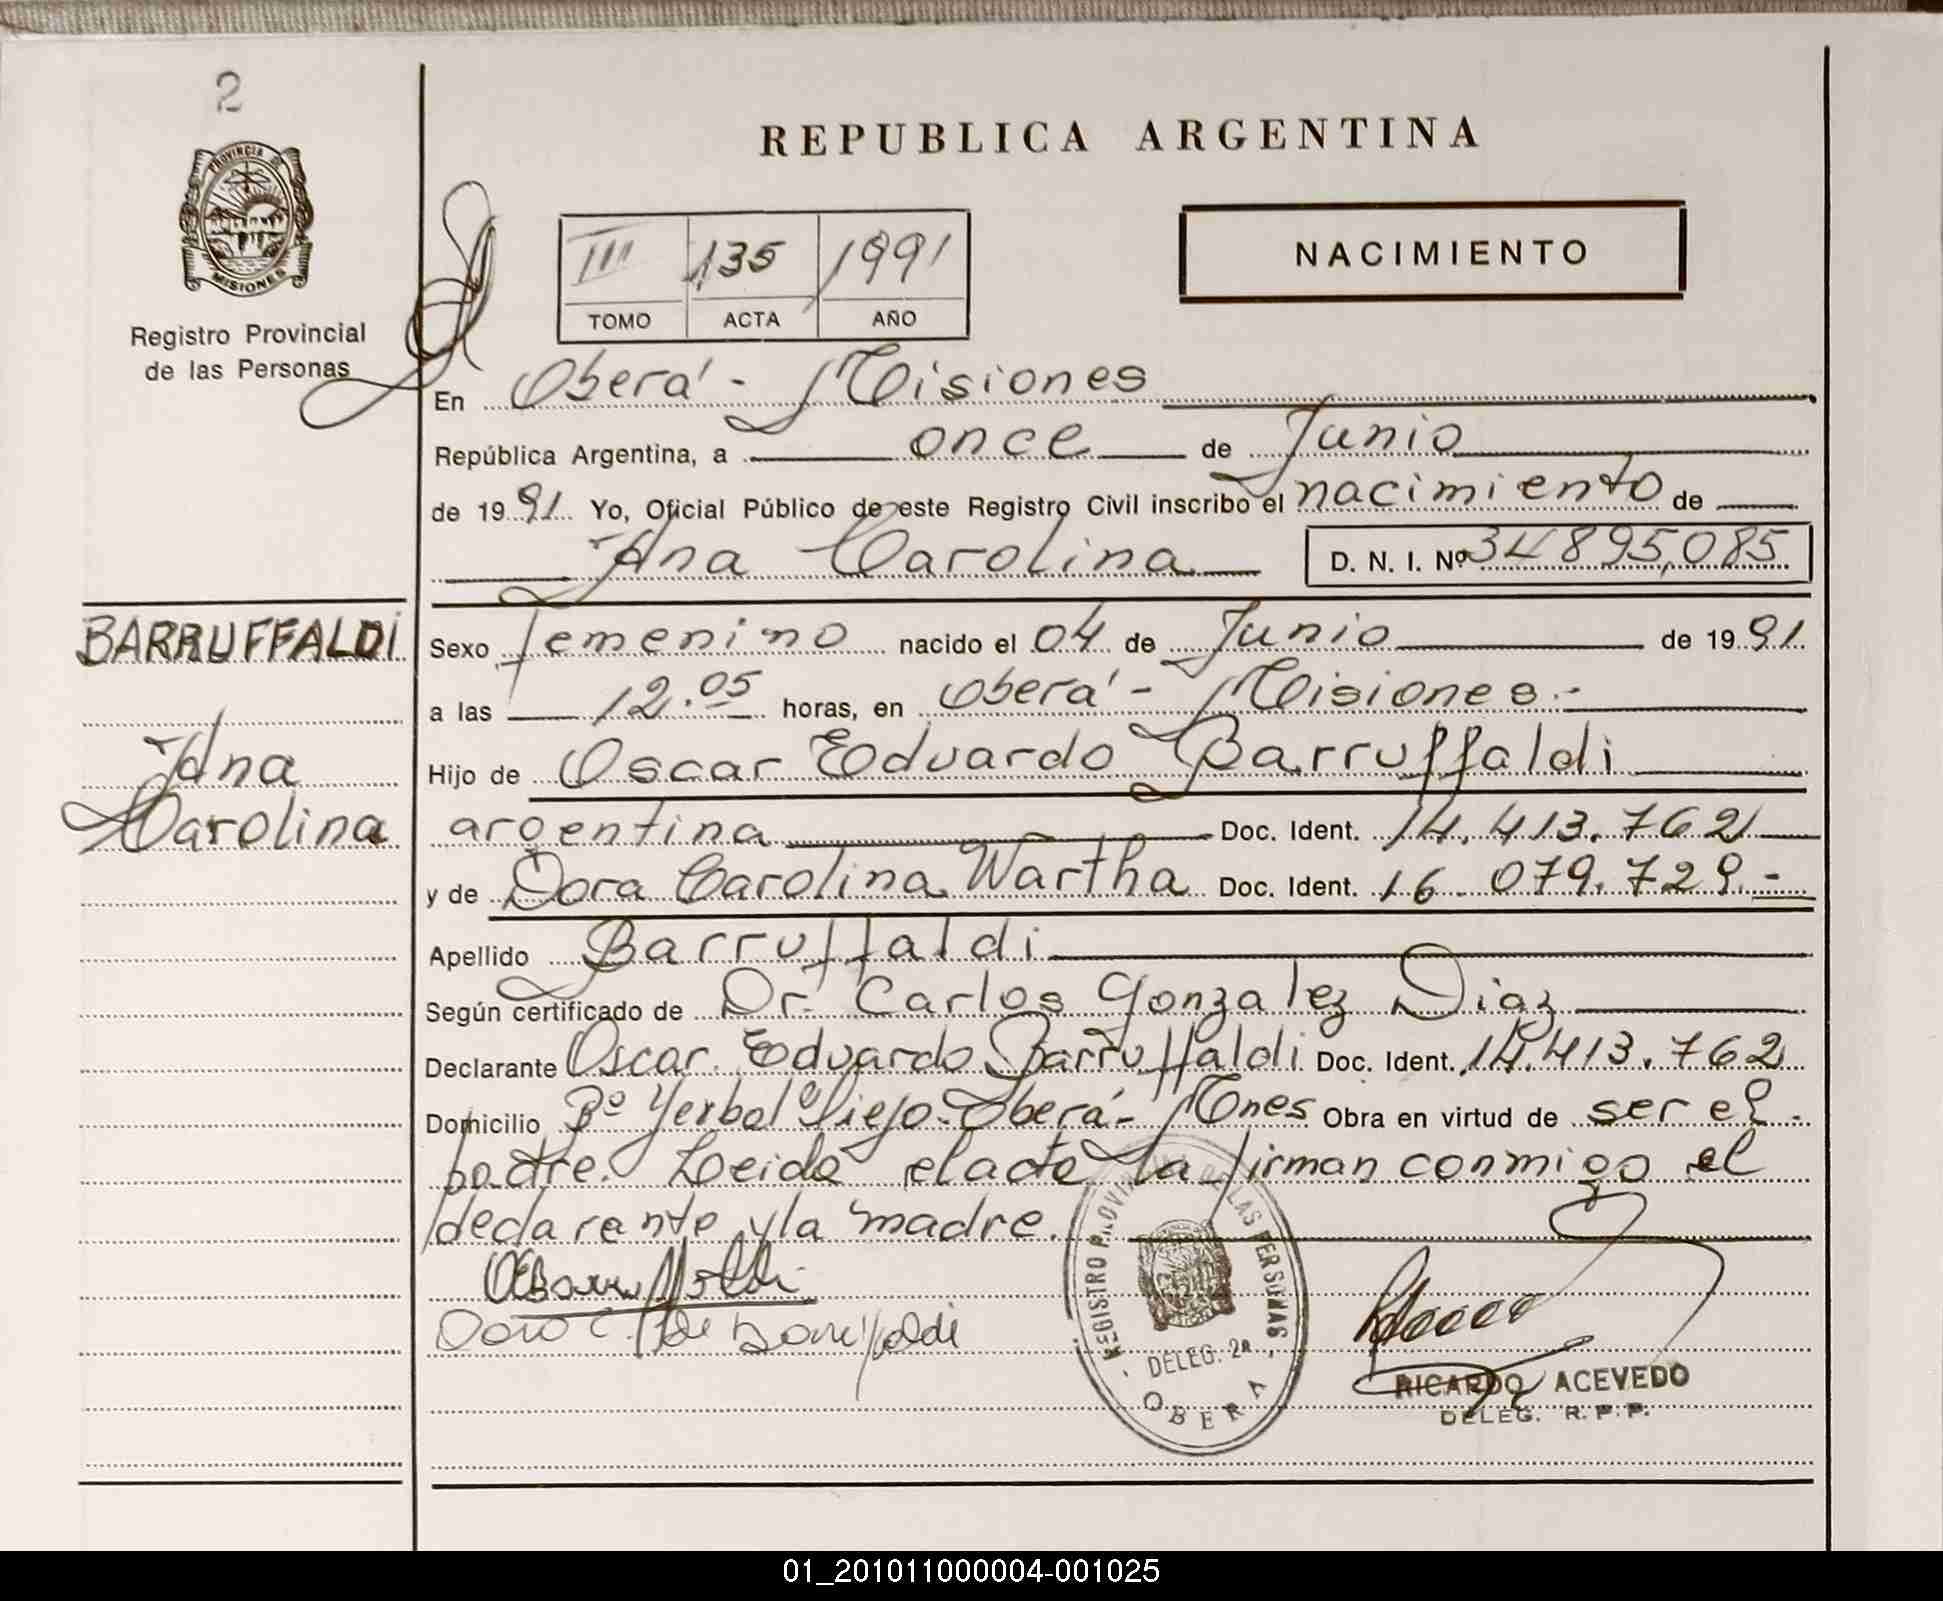 2
REPUBLICA ARGENTINA
PROVINCIA DE
MISIONES
Registro Provincial
de las Personas
III 135 1991
TOMO ACTA AÑO
NACIMIENTO
En Oberá - Misiones
República Argentina, a once de Junio
de 1991 Yo, Oficial Público de este Registro Civil inscribo el nacimiento de
Ana Carolina D. N. I. Nº 34895,085
BARRUFFALDI
Ana
Carolina
Sexo femenino nacido el 04 de Junio de 1991
a las 12.05 horas, en Oberá - Misiones.-
Hijo de Oscar Eduardo Barruffaldi
argentina Doc. Ident. 14.413.762
y de Dora Carolina Wartha Doc. Ident. 16.079.729.-
Apellido Barruffaldi
Según certificado de Dr. Carlos Gonzalez Diaz
Declarante Oscar Eduardo Barruffaldi Doc. Ident. 14.413.762
Domicilio Bº Yerbal Viejo-Oberá- Mnes Obra en virtud de ser el
padre. Leida el acta la firman conmigo el
declarante y la madre.
REGISTRO PROVINCIAL DE LAS PERSONAS
- DELEG. 2ª -
OBERA
RICARDO ACEVEDO
DELEG. R. P. P.
01_201011000004-001025